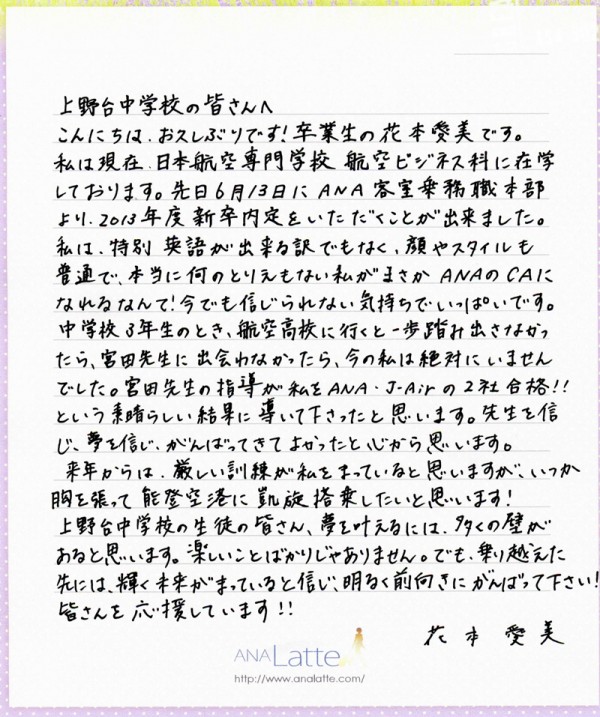 上野台中学校の皆さんへ
こんにちは、お久しぶりです！卒業生の花本愛美です。
私は現在、日本航空専門学校 航空ビジネス科に在学
しております。先日6月13日にANA客室乗務職本部
より、2013年度新卒内定をいただくことが出来ました。
私は、特別 英語が出来る訳でもなく、顔やスタイルも
普通で、本当に何のとりえもない私がまさかANAのCAに
なれるなんて！今でも信じられない気持ちでいっぱいです。
中学校3年生のとき、航空高校に行くと一歩踏み出さなかっ
たら、宮田先生に出会わなかったら、今の私は絶対にいません
でした。宮田先生の指導が私をANA・J-Airの2社合格！！
という素晴らしい結果に導いて下さったと思います。先生を信
じ、夢を信じ、がんばってきてよかったと心から思います。
来年からは、厳しい訓練が私をまっていると思いますが、いつか
胸を張って能登空港に凱旋搭乗したいと思います！
上野台中学校の生徒の皆さん、夢を叶えるには、多くの壁が
あると思います。楽しいことばかりじゃありません。でも、乗り越えた
先には、輝く未来がまっていると信じ、明るく前向きにがんばって下さい！
皆さんを応援しています！！
花本愛美
ANA Latte
http://www.analatte.com/